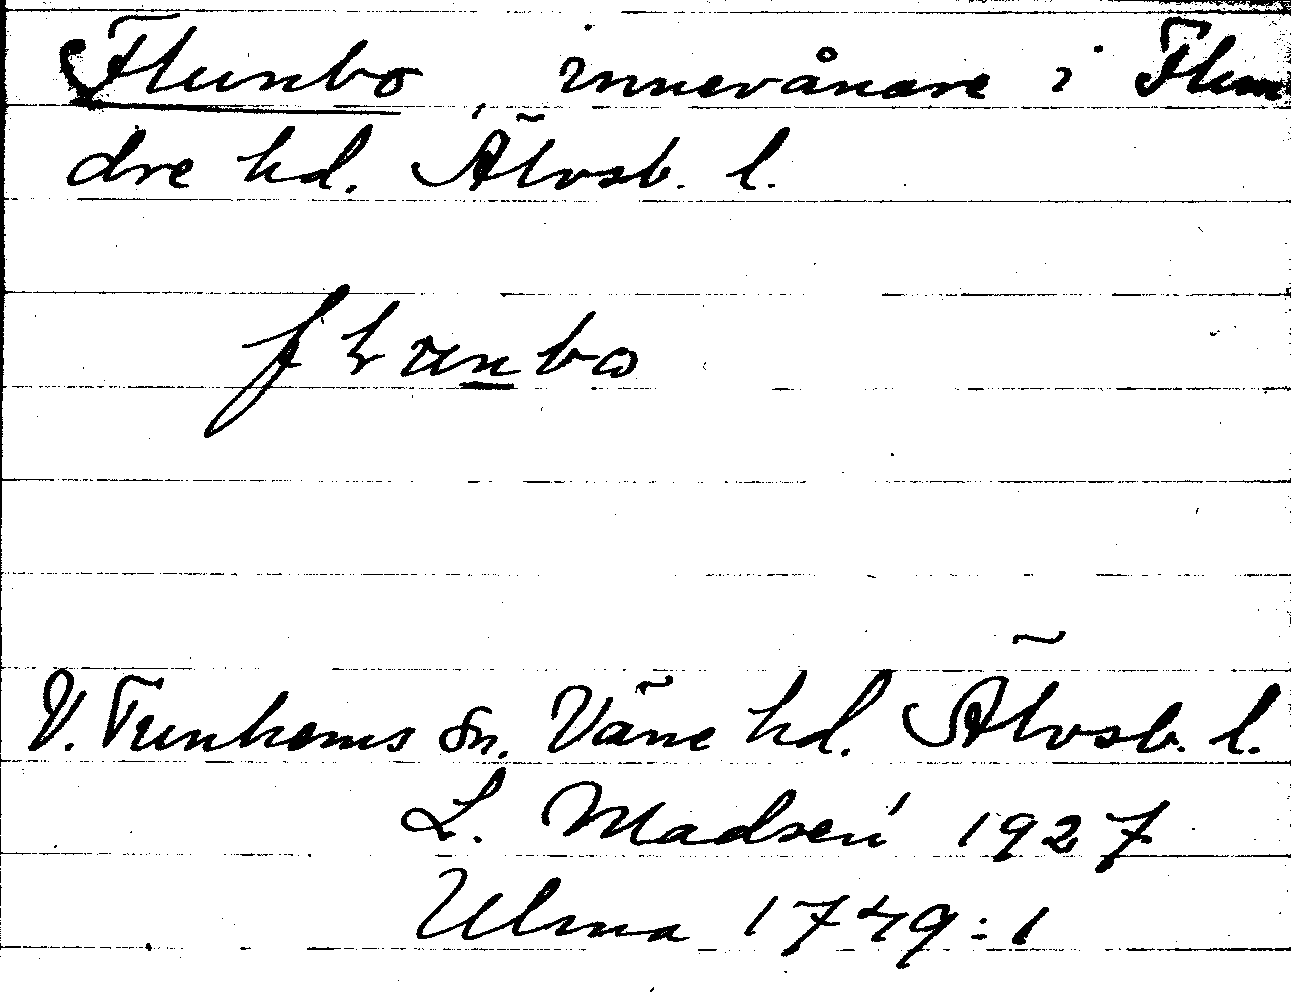 Flunbo, innevånare i Flun
dre hd. Älvsb. l.
flunbo
V. Tunhems sn. Väne hd. Älvsb. l.
L. Madsén 1927
Ulma 1749:1